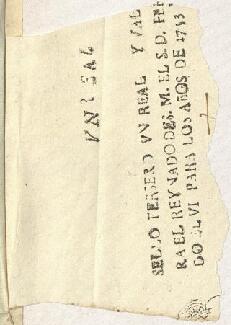 VN REAL
SELLO TERSERO VN REAL Y VAL
RA EL REYNADO DE S. M. EL S. D. FER
DO VI PARA LOS AÑOS DE